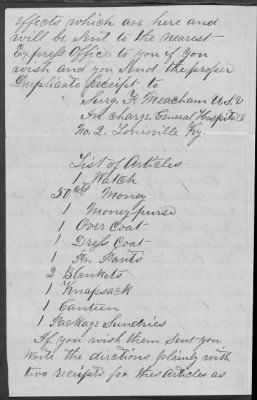 effects which are here and
will be sent to the nearest
Express Office to you if you
wish and you send the proper
Duplicate Receipt to
Surg. F. Meacham U.S.V
In charge General Hospital
No. 2. Louisville Ky.
List of Articles
1 Watch
50 cts Money
1 Money purse
1 Over Coat
1 Dress Coat
1 Pr. Pants
2 Blankets
1 Knapsack
1 Canteen
1 Package Sundries
If you wish them sent you
write the directions plainly with
two receipts for these articles as